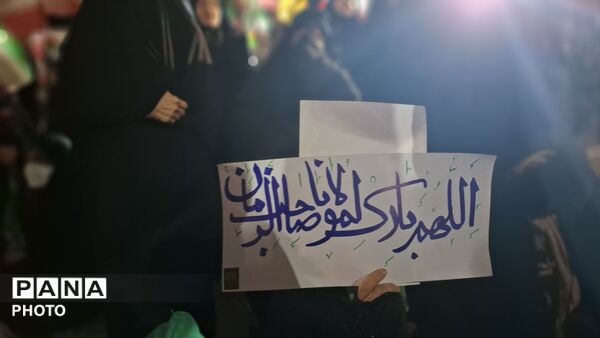 اللهم بارک لمولانا صاحب الزمان
PANA
PHOTO